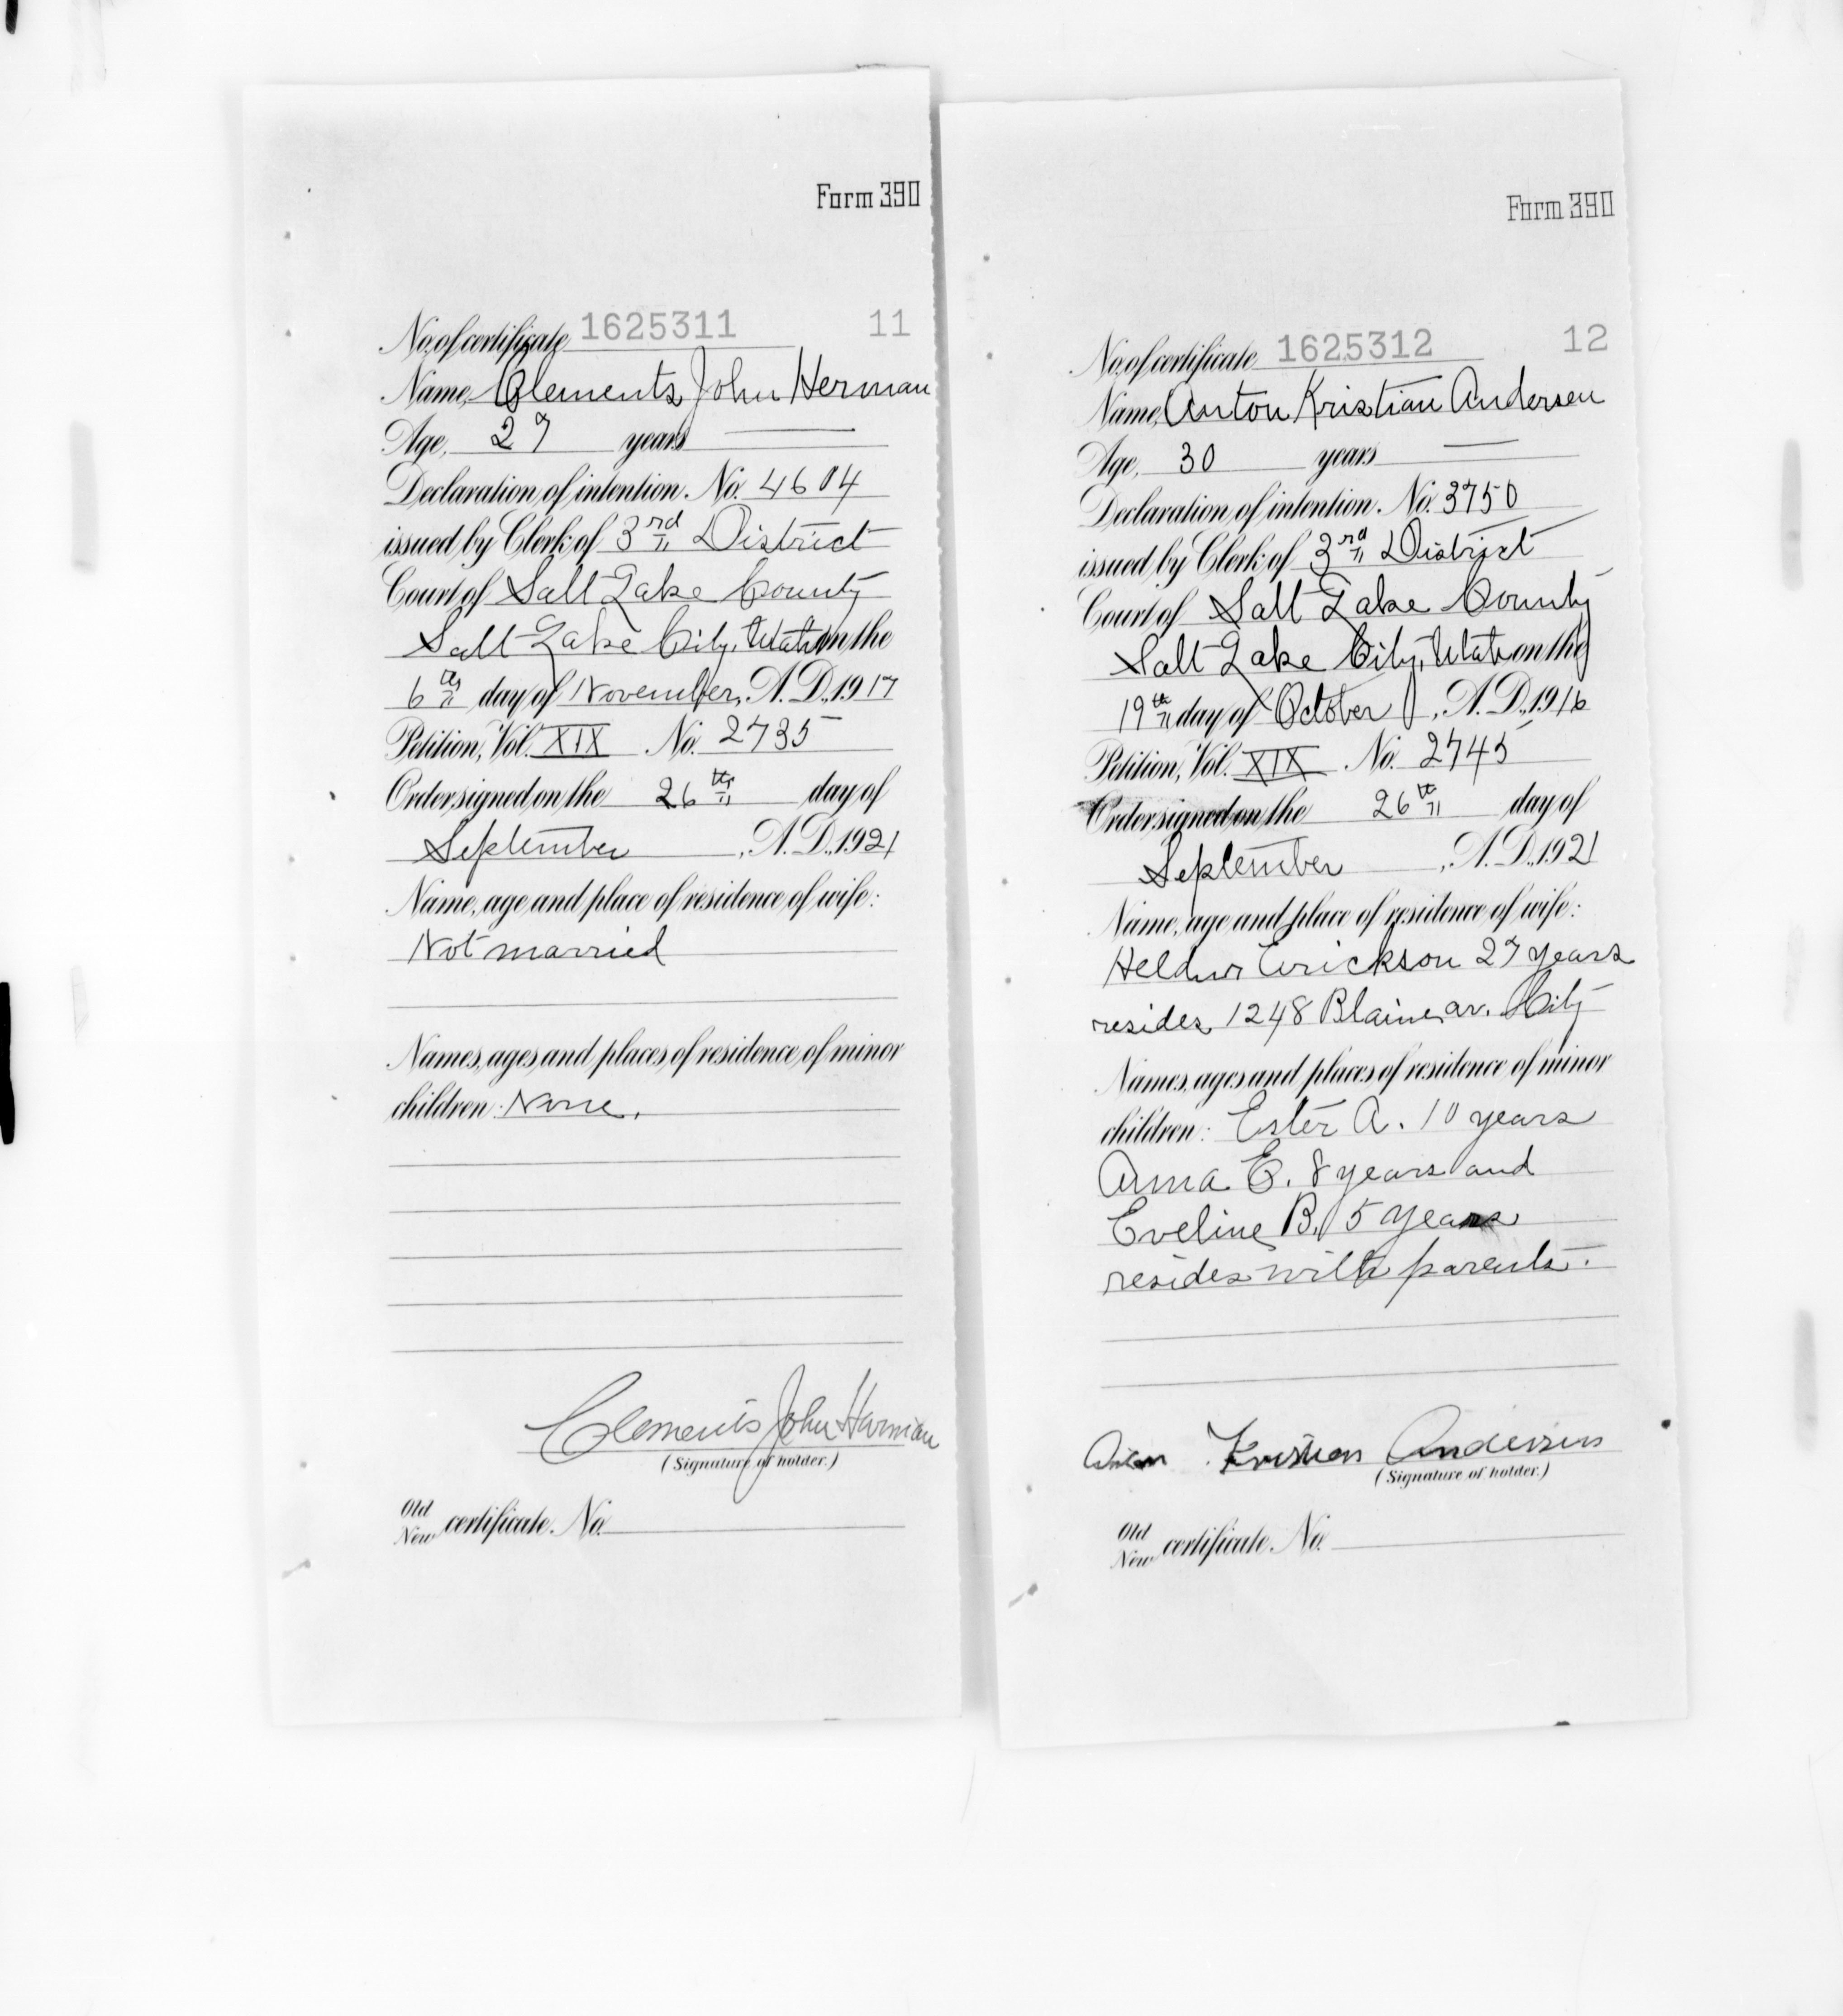 Form 390
No. of certificate 1625311 11
Name, Clements John Herman
Age, 27 years
Declaration of intention. No. 4604
issued by Clerk of 3rd District
Court of Salt Lake County
Salt Lake City, Utah on the
6th day of November, A.D., 1917
Petition, Vol. XIX No. 2735
Order signed on the 26th day of
September, A.D., 1921
Name, age and place of residence of wife:
Not married
Names, ages and places of residence of minor
children: None.
Clements John Herman
(Signature of holder.)
Old
New certificate. No.
Form 390
No. of certificate 1625312 12
Name, Anton Kristian Andersen
Age, 30 years
Declaration of intention. No. 3750
issued by Clerk of 3rd District
Court of Salt Lake County
Salt Lake City, Utah on the
19th day of October, A.D., 1916
Petition, Vol. XIX No. 2745
Order signed on the 26th day of
September, A.D., 1921
Name, age and place of residence of wife:
Erickson 27 years
resides 1248 Blaine av. City
Names, ages and places of residence of minor
children: Ester A. 10 years
E. 8 years and
Eveline B. 5 years
resides with parents.
Kristian Andersen
(Signature of holder.)
Old
New certificate. No.